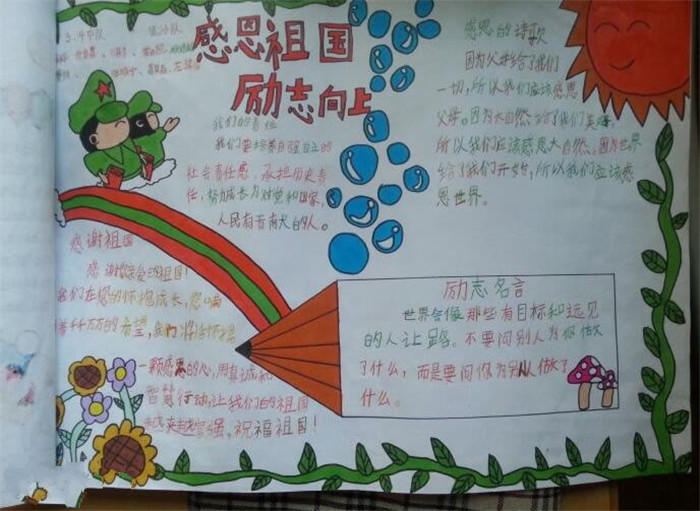 感恩祖国
励志向上
我们的责任
我们要培养自强自立的
社会责任感，承担历史责
任，努力成长为对党和国家，
人民有所有大的人。
感恩的诗歌
因为父母给了我们
一切，所以我们应该感恩
父母。因为大自然给了我们美
所以我们应该感恩大自然。因为世界
给了我们开始，所以我们应该感
恩世界。
感谢祖国
感谢您亲爱的祖国！
我们在您的怀抱成长，您
着千千万万的希望，我们将
一颗感恩的心，用真诚和
智慧行动让我们的祖国
越来越富强，祝福祖国！
励志名言
世界会像那些有目标和远见
的人让路。不要问别人为你做
了什么，而是要问你为别人做了
什么。